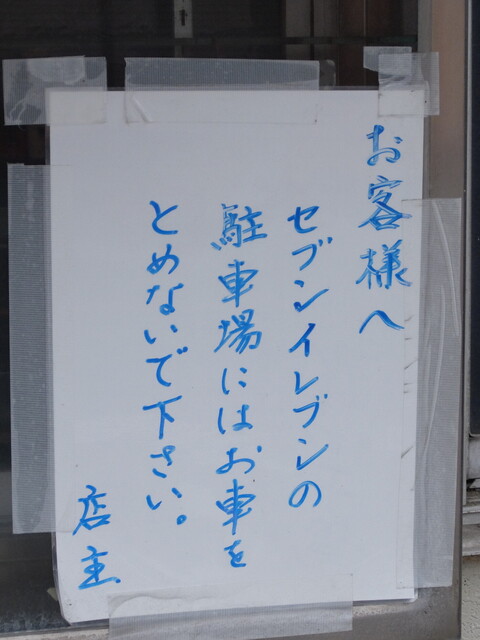 お客様へ
セブンイレブンの
駐車場にはお車を
とめないで下さい。
店主